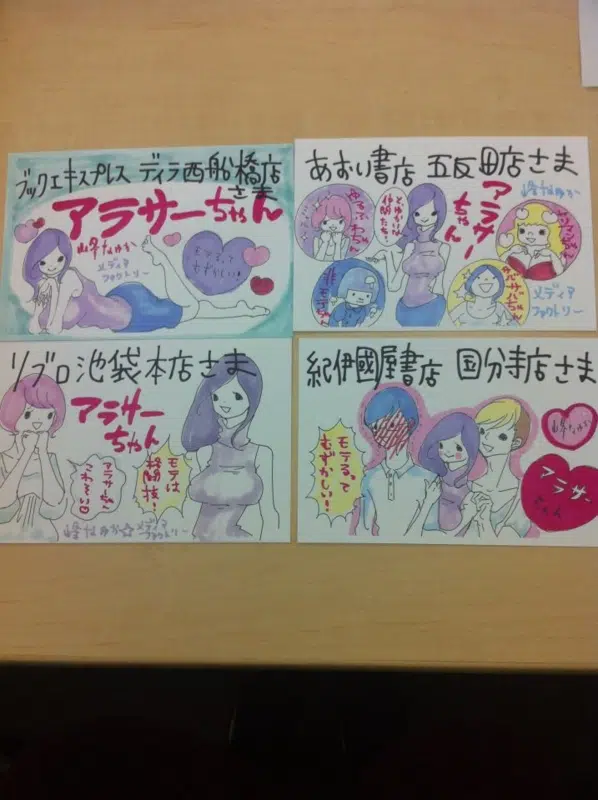 ブックエキスプレス ディラ西船橋店
さま
アラサーちゃん
峰なゆか
メディア
ファクトリー
モテるって
むずかしい!
あおい書店 五反田店さま
アラサー
ちゃん
峰なゆか
と、ゆかいな
仲間たち!
ゆるふわちゃん
非モテちゃん
メディア
ファクトリー
リブロ池袋本店さま
アラサー
ちゃん
モテは
格闘技!
アラサーちゃん
こわーい♡
峰なゆか☆メディア
ファクトリー
紀伊國屋書店 国分寺店さま
モテるって
むずかしい!
峰なゆか
アラサー
ちゃん